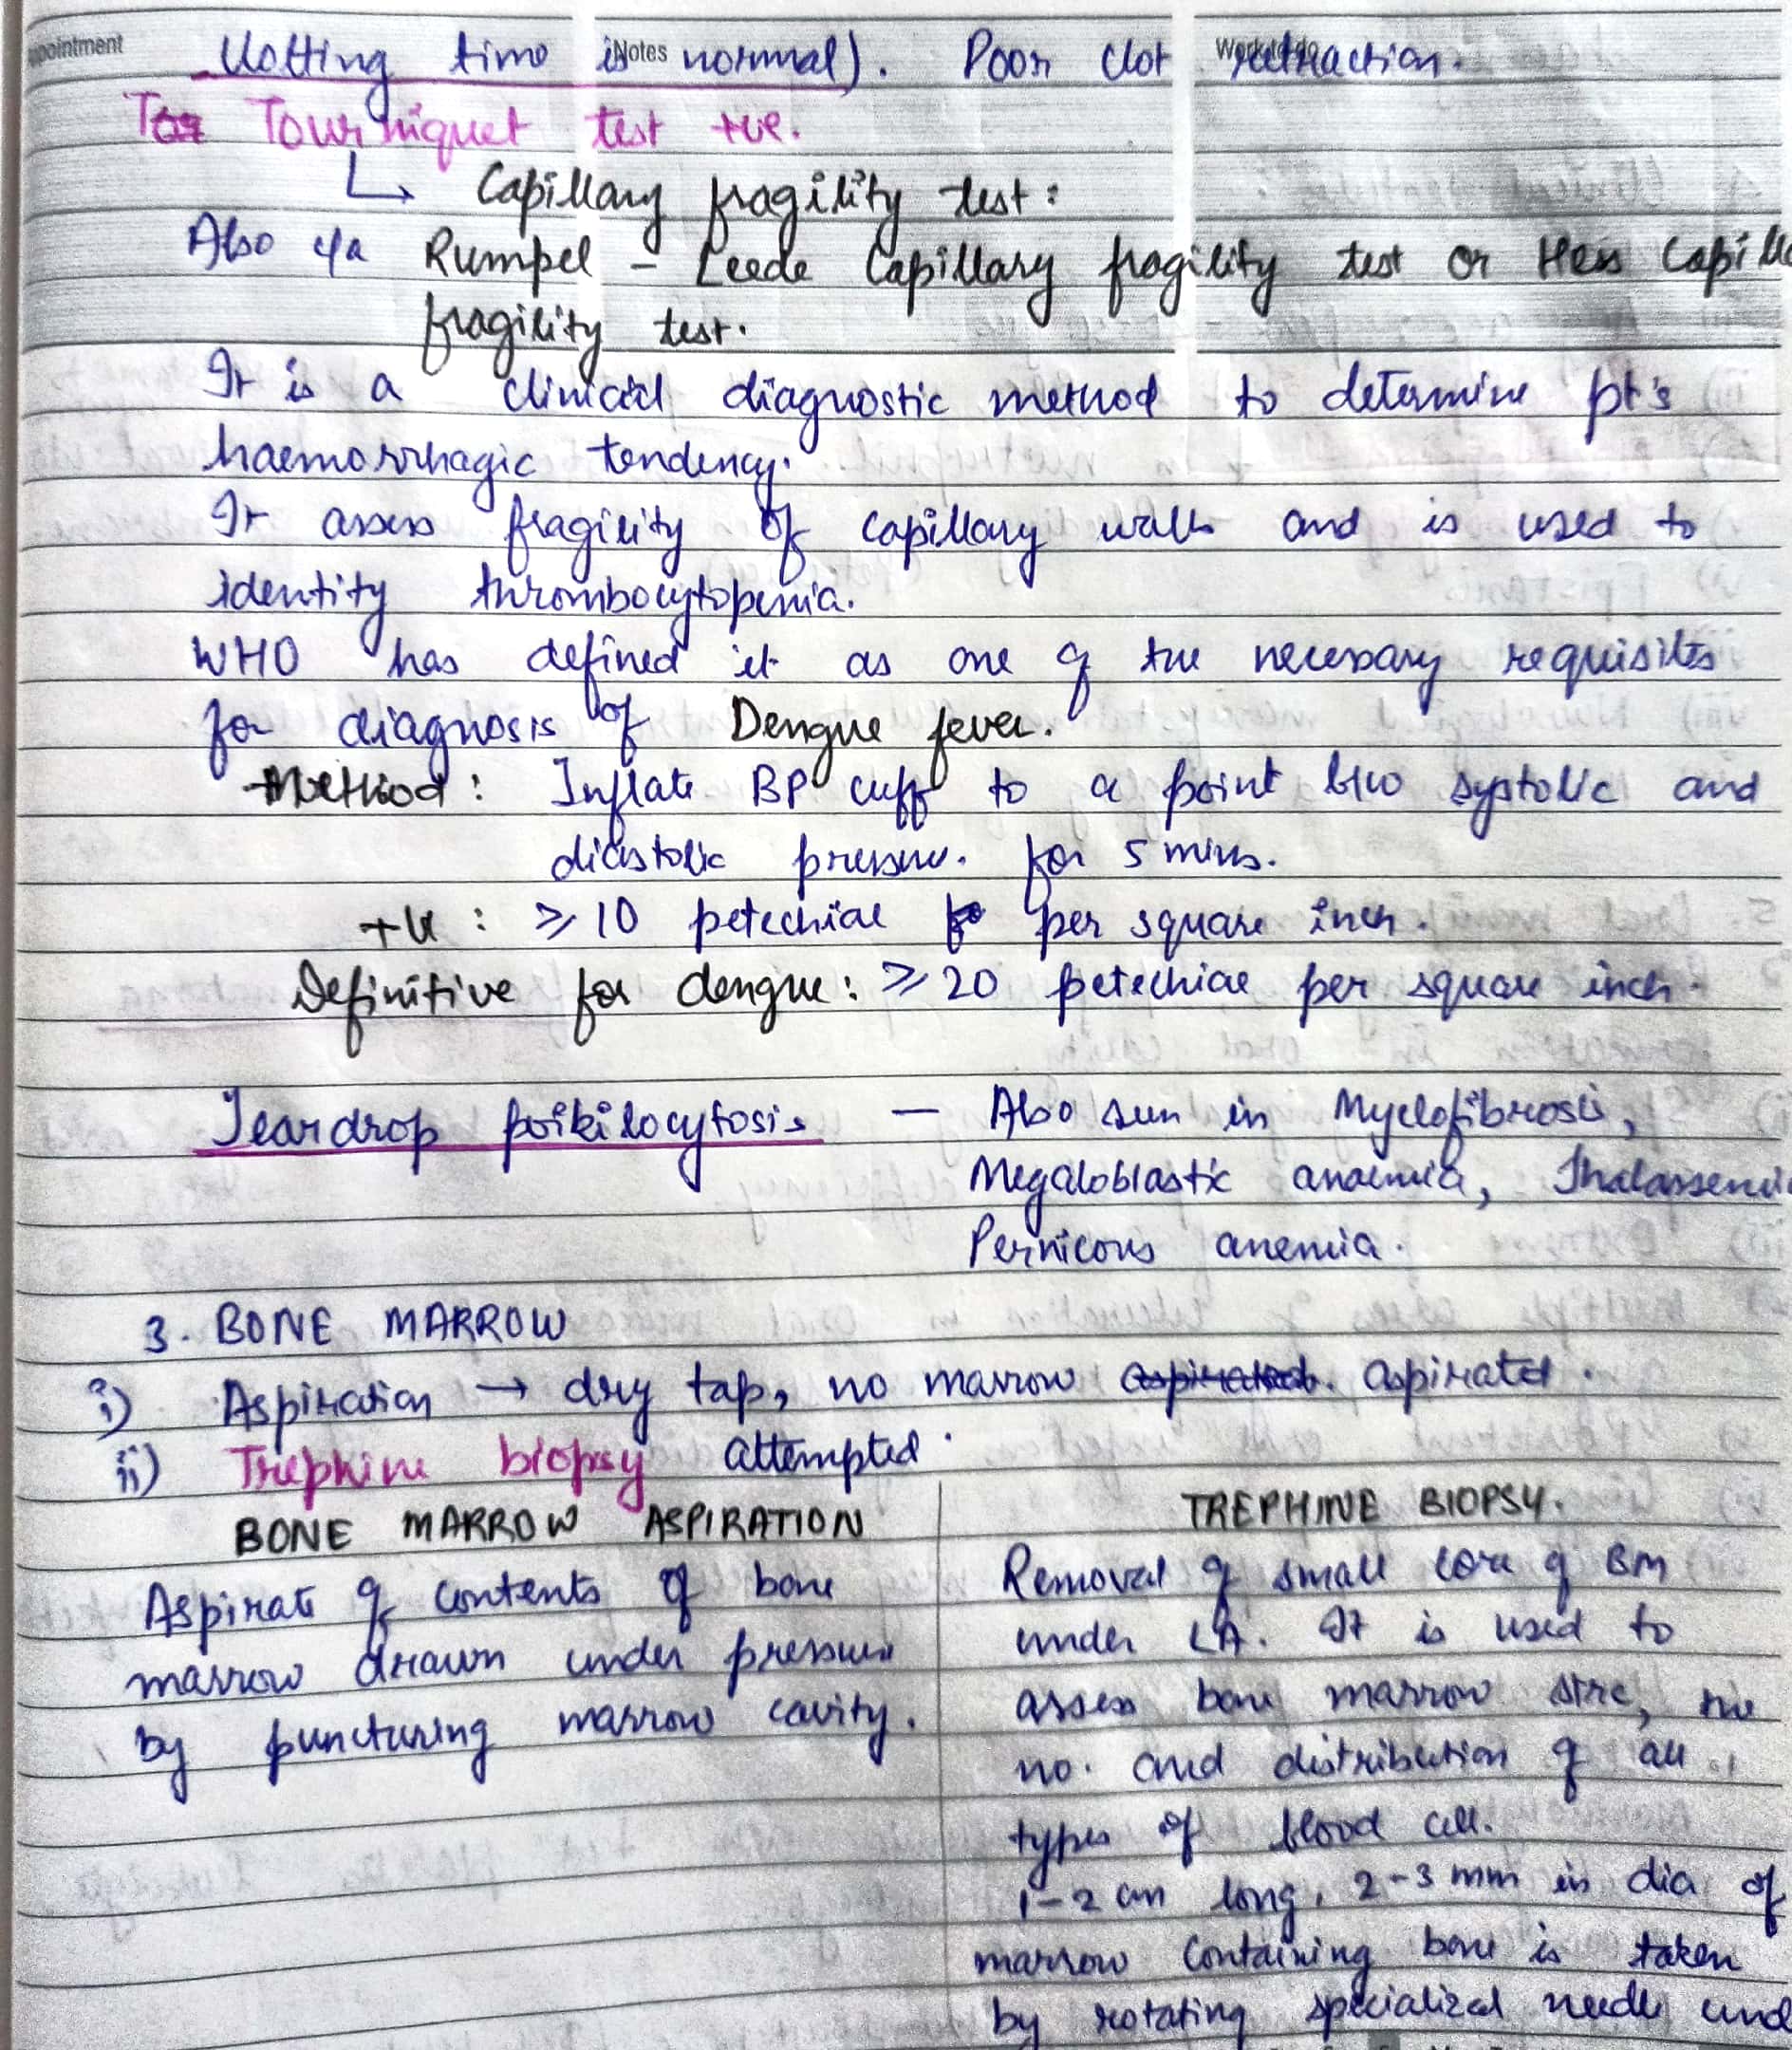 appointment Notes Work to do
Clotting time is normal). Poor clot retraction.
Tourniquet test +ve.
↳ Capillary fragility test:
Also k/a Rumpel - Leede Capillary fragility test or Hess Capilla
fragility test.
It is a clinical diagnostic method to determine pt's
haemorrhagic tendency.
It assess fragility of capillary walls and is used to
identity thrombocytopenia.
WHO has defined it as one of the necessary requisites
for diagnosis of Dengue fever.
Method: Inflate BP cuff to a point b/w systolic and
diastolic pressure. for 5 mins.
+ve: ≥ 10 petechiae per square inch.
Definitive for dengue: ≥ 20 petechiae per square inch.
Teardrop poikilocytosis — Also seen in Myelofibrosis,
Megaloblastic anaemia, Thalassemia
Pernicous anemia.
3. BONE MARROW
i) Aspiration → dry tap, no marrow aspirated. aspirated.
ii) Trephine biopsy attempted.
BONE MARROW ASPIRATION
Aspirate of contents of bone
marrow drawn under pressure
by puncturing marrow cavity.
TREPHINE BIOPSY.
Removal of small core of BM
under LA. It is used to
assess bone marrow strc, the
no. and distribution of all
types of blood cell.
1-2 cm long, 2-3 mm in dia of
marrow containing bone is taken
by rotating specialized needle und